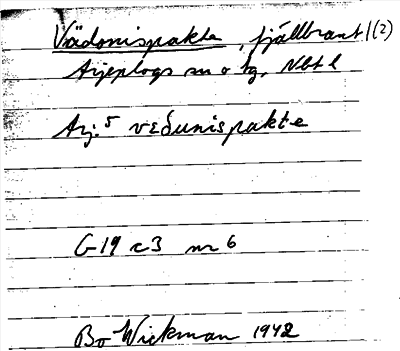 Vädonispakte, fjällbrant 1(2)
Arjeplogs sn o tg, Nbt l
Arj. 5 veδunispakte
G 19 c 3 nr 6
Bo Wickman 1942